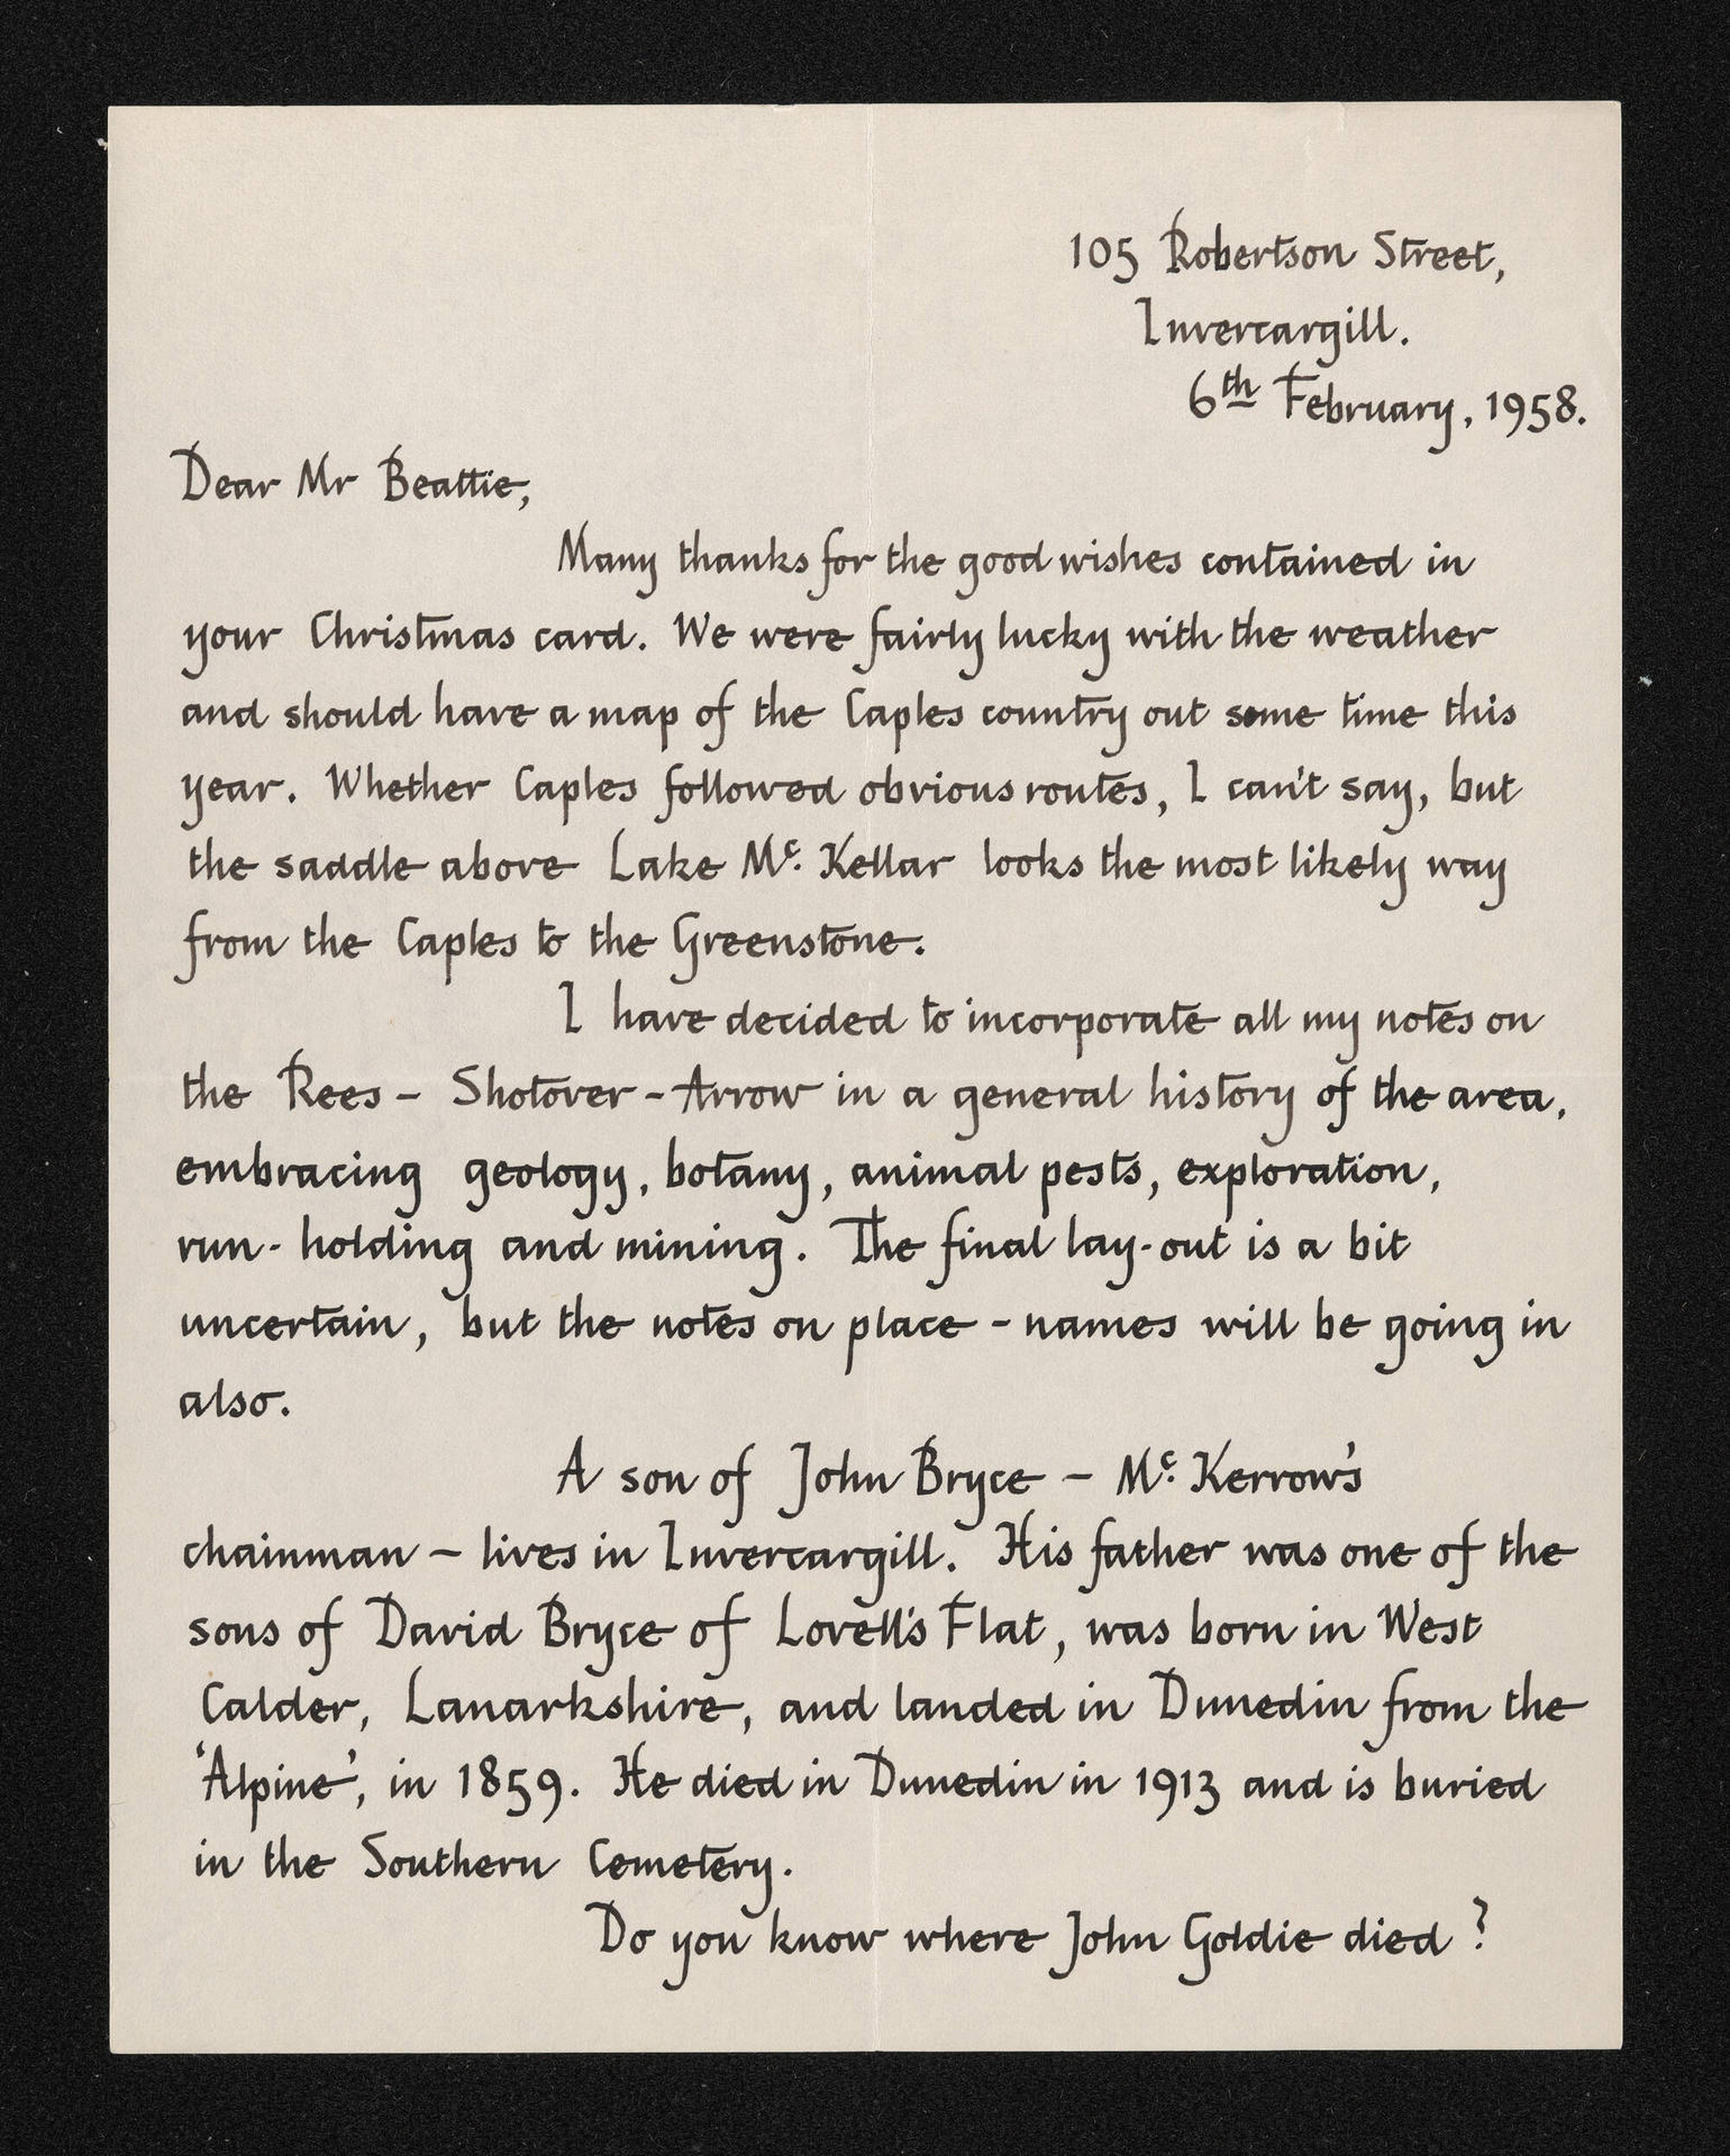 105 Robertson Street,
Invercargill.
6th February, 1958.
Dear Mr Beattie,
Many thanks for the good wishes contained in
your Christmas card. We were fairly lucky with the weather
and should have a map of the Caples country out some time this
year. Whether Caples followed obvious routes, I can't say, but
the saddle above Lake Mc. Kellar looks the most likely way
from the Caples to the Greenstone.
I have decided to incorporate all my notes on
the Rees - Shotover - Arrow in a general history of the area,
embracing geology, botany, animal pests, exploration,
run-holding and mining. The final lay-out is a bit
uncertain, but the notes on place-names will be going in
also.
A son of John Bryce - Mc. Kerrow's
chainman - lives in Invercargill. His father was one of the
sons of David Bryce of Lovell's Flat, was born in West
Calder, Lanarkshire, and landed in Dunedin from the
'Alpine', in 1859. He died in Dunedin in 1913 and is buried
in the Southern Cemetery.
Do you know where John Goldie died?